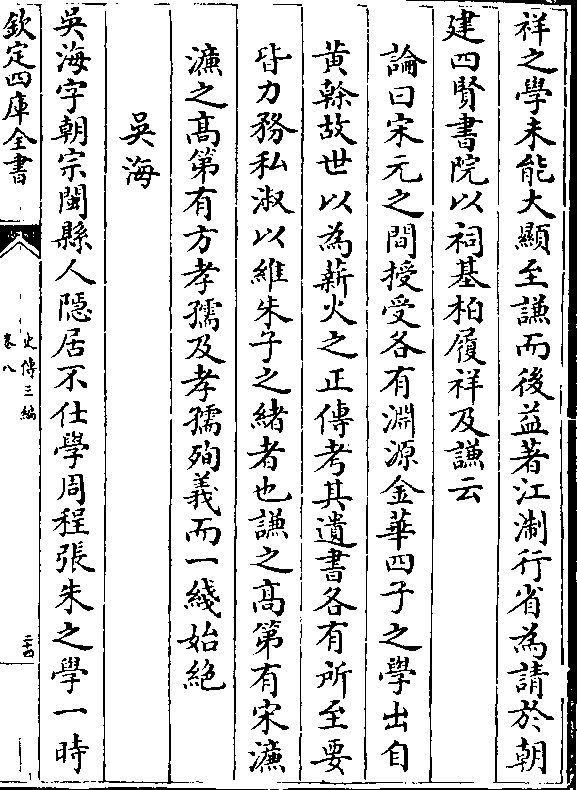 祥之學未能大顯至謙而後益著江淛行省為請於朝
建四賢書院以祠基柏履祥及謙云
論曰宋元之間授受各有淵源金華四子之學出自
黄榦故世以為薪火之正傳考其遺書各有所至要
皆力務私淑以維朱子之緒者也謙之髙第有宋濂
濂之髙第有方孝孺及孝孺殉義而一綫始絶
吳海
吳海字朝宗閩縣人隠居不仕學周程張朱之學一時
欽定四庫全書
史傳三編
卷八
二十四